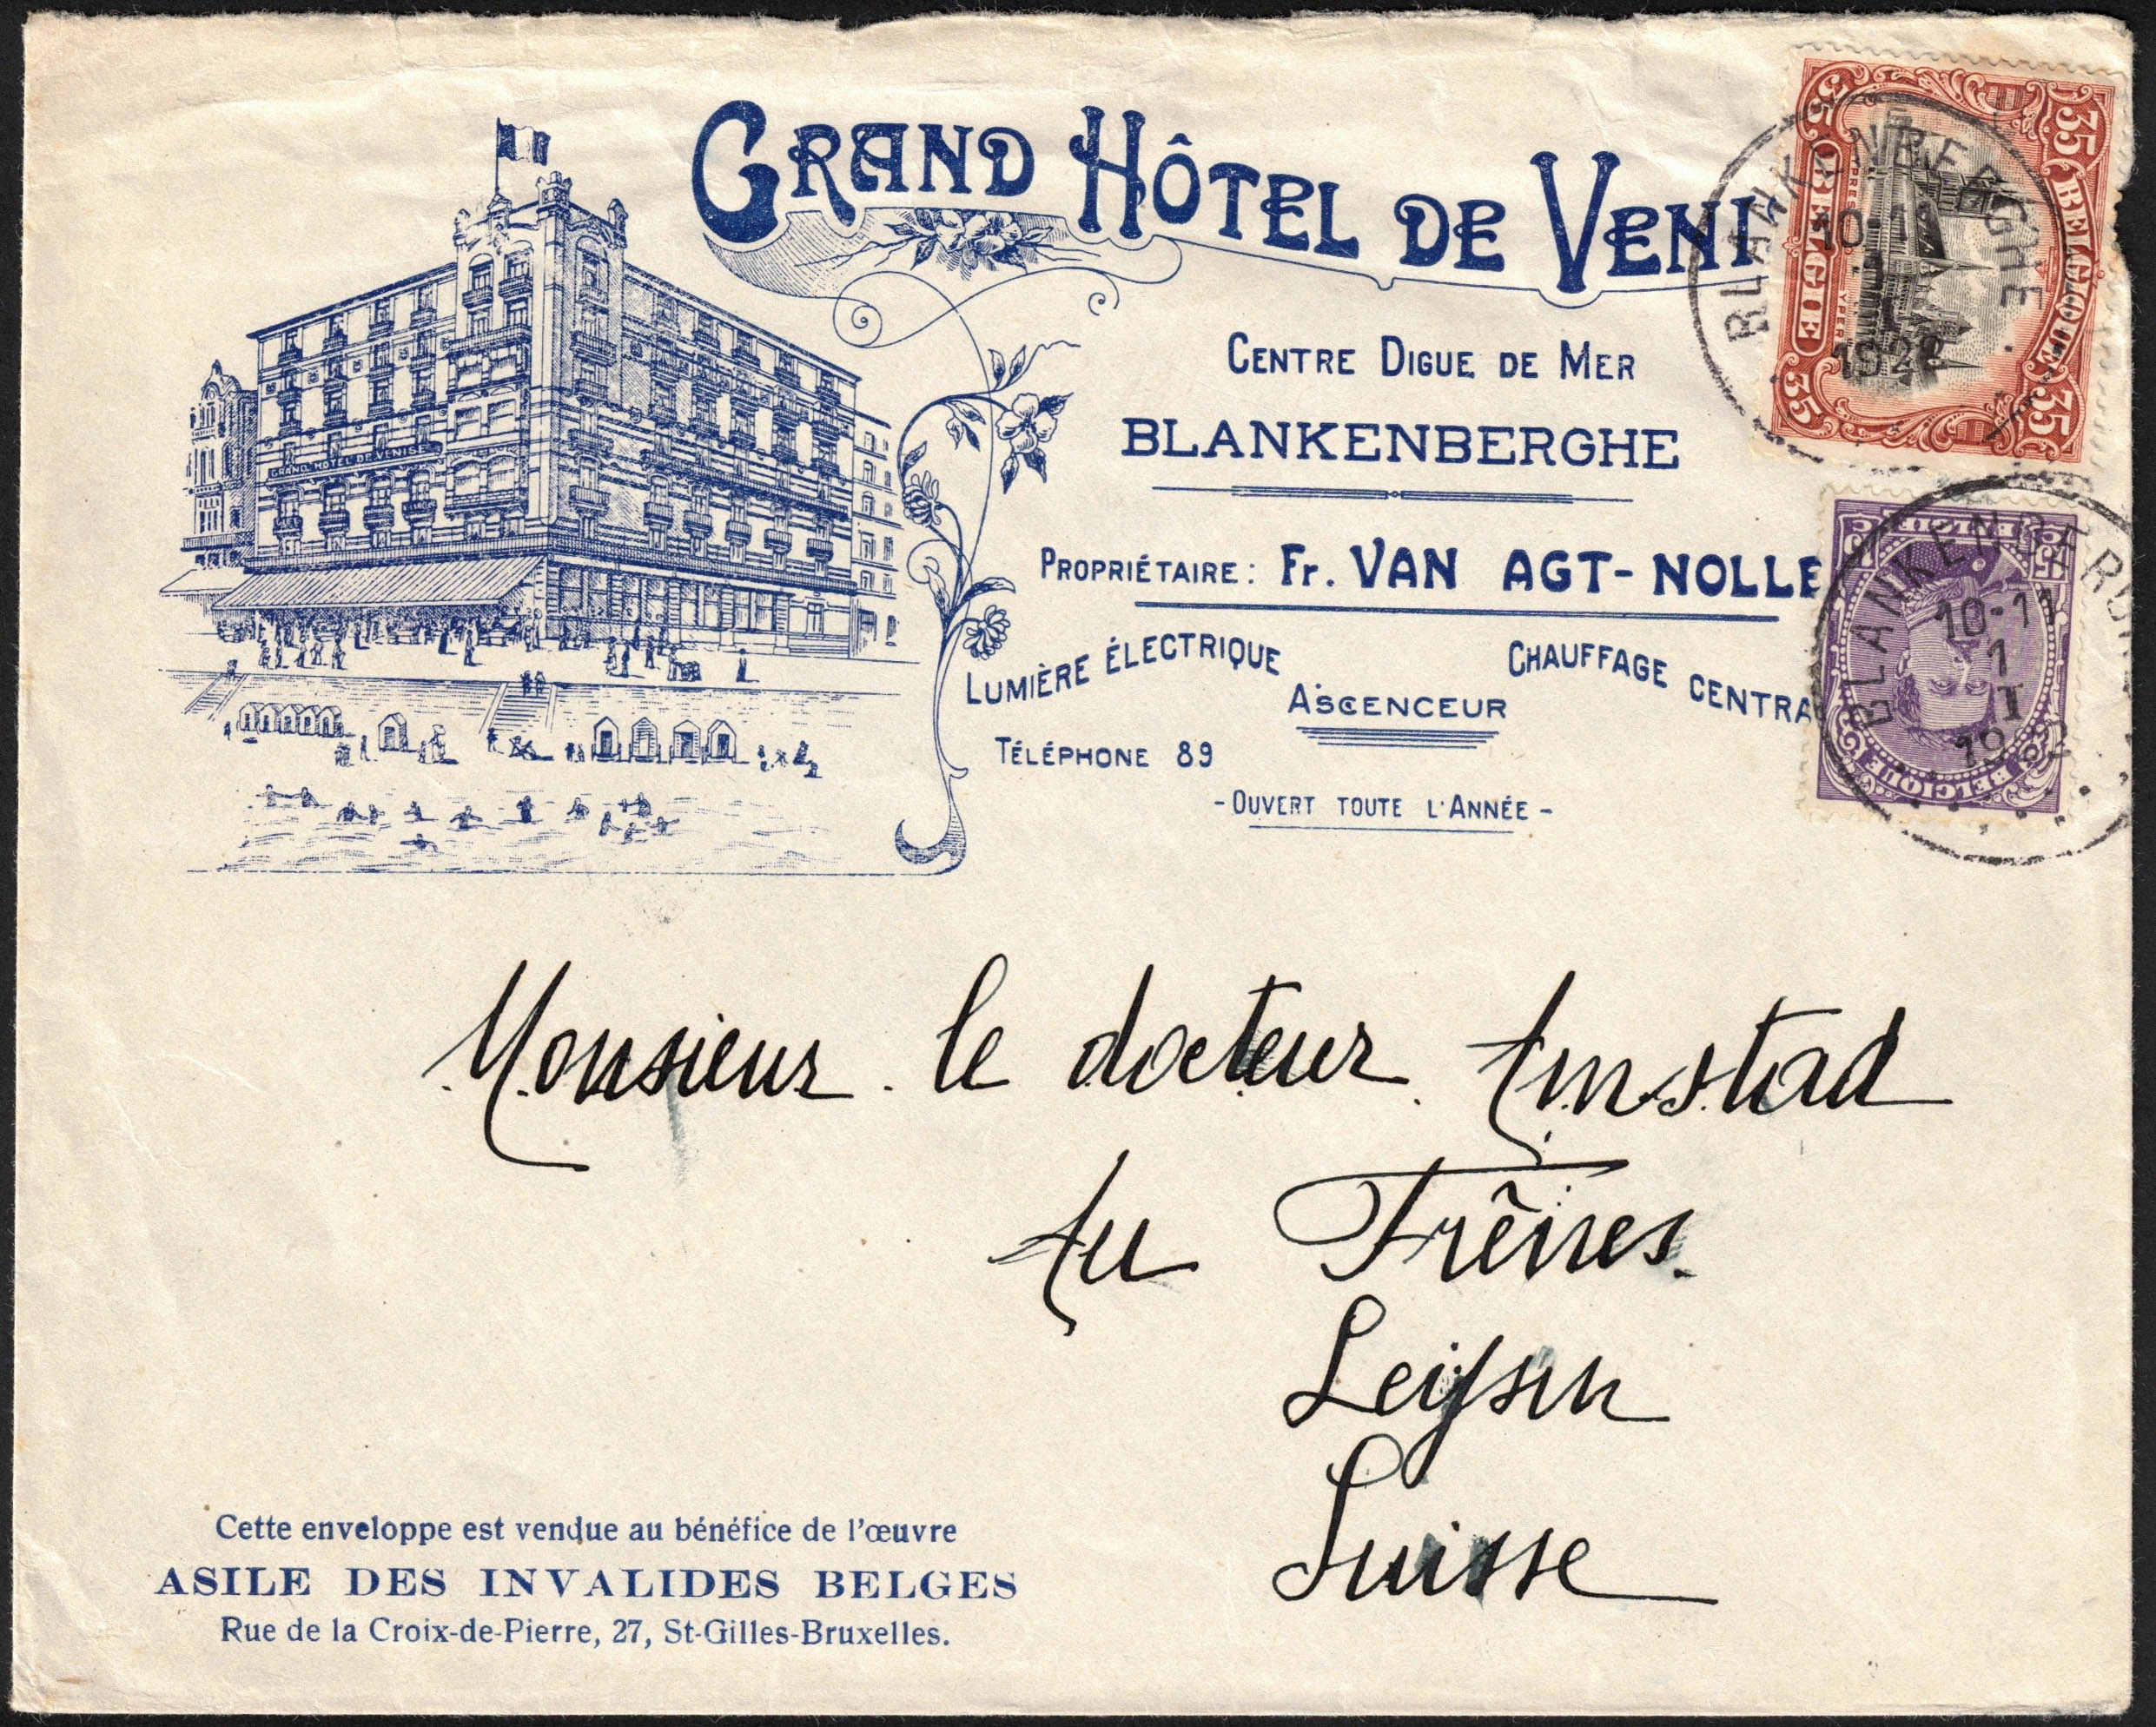 GRAND HÔTEL DE VENI
GRAND HÔTEL DE VENISE
CENTRE DIGUE DE MER
BLANKENBERGHE
PROPRIÉTAIRE: Fr. VAN AGT-NOLLE
LUMIÈRE ÉLECTRIQUE
ASCENCEUR
CHAUFFAGE CENTRA
TÉLÉPHONE 89
- OUVERT TOUTE L'ANNÉE -
35 35
BELGIQUE
BELGIË
YPRES
YPER
35 35
BLANKENBERGHE
10-11
1922
15 15
BELGIË
BELGIQUE
BLANKENBERGHE
10-11
1
I
1922
Monsieur le docteur Amstad
Au Frênes.
Leysin
Suisse
Cette enveloppe est vendue au bénéfice de l'œuvre
ASILE DES INVALIDES BELGES
Rue de la Croix-de-Pierre, 27, St-Gilles-Bruxelles.